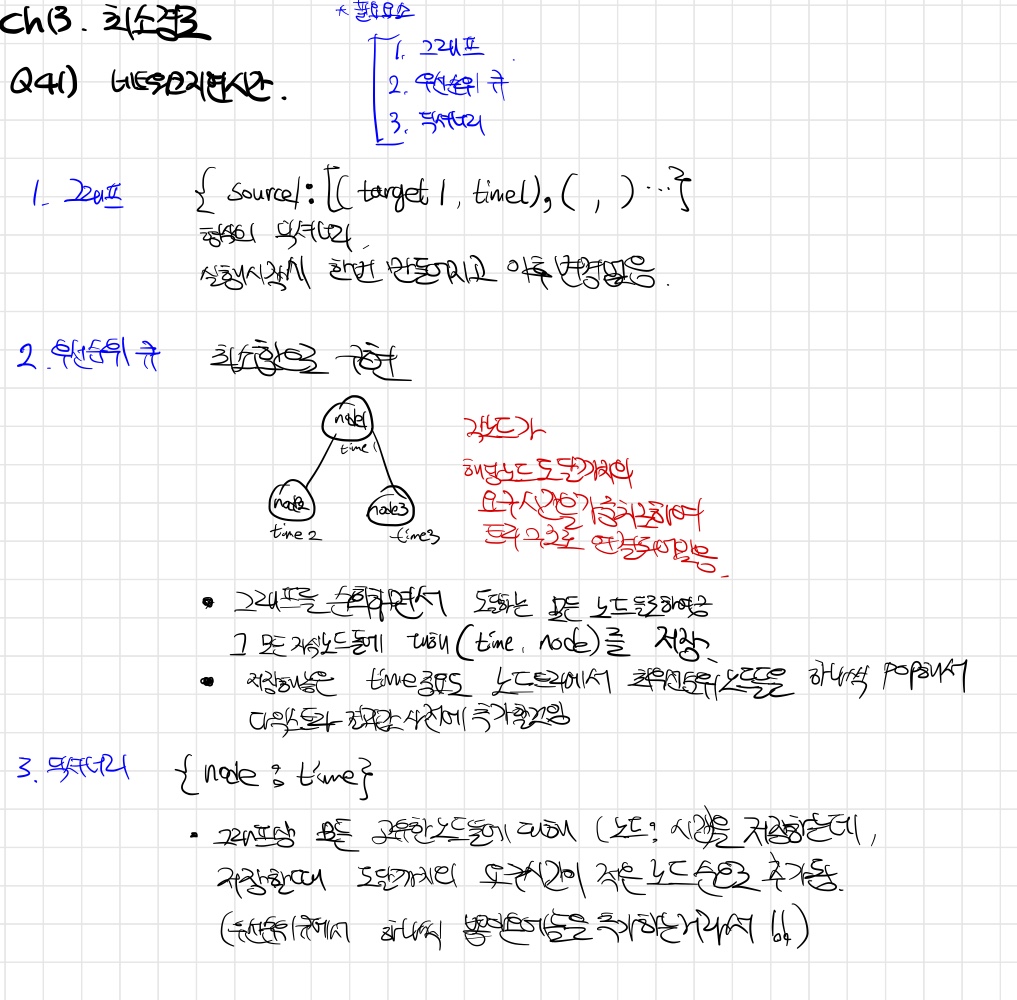 ch13. 최소경로
* 필요요소
1. 그래프
Q41) 네트워크지연시간.
2. 우선순위 큐
3. 딕셔너리
1. 그래프
{ source1: [( target 1, time1), ( , ) ...}
형식의 딕셔너리.
실행시작시 한번 만들어지고 이후 변경없음.
2. 우선순위 큐
최소힙으로 구현
node1
time 1
node2
time 2
node3
time3
각노드가
해당노드 도달까지의
요구시간을 가중치로하여
트리구조로 연결되어있음.
• 그래프를 순회하면서 도달하는 모든 노드들로하여금
그 모든 자식노드들에 대해 (time, node)를 저장.
• 저장해놓은 time중요도 노드트리에서 최우선순위노드들을 하나씩 POP해서
다익스트라 결과값 사전에 추가할것임
3. 딕셔너리
{node : time}
• 그래프상 모든 고유한노드들에 대해 (노드: 시간)을 저장하는데,
저장할때 도달까지의 요구시간이 적은 노드순으로 추가됨.
(우선순위큐에서 하나씩 뽑은애들을 추가하는거라서 !!)